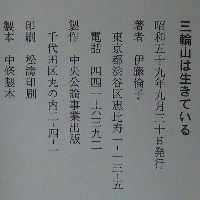 三輪山は生きている
昭和五十九年九月三十日発行
著者 伊藤倫子
東京都渋谷区恵比寿一-一三-五
電話 四四一-六三九二
製作 中央公論事業出版
千代田区丸の内三-四-一
印刷 松濤印刷
製本 中條製本